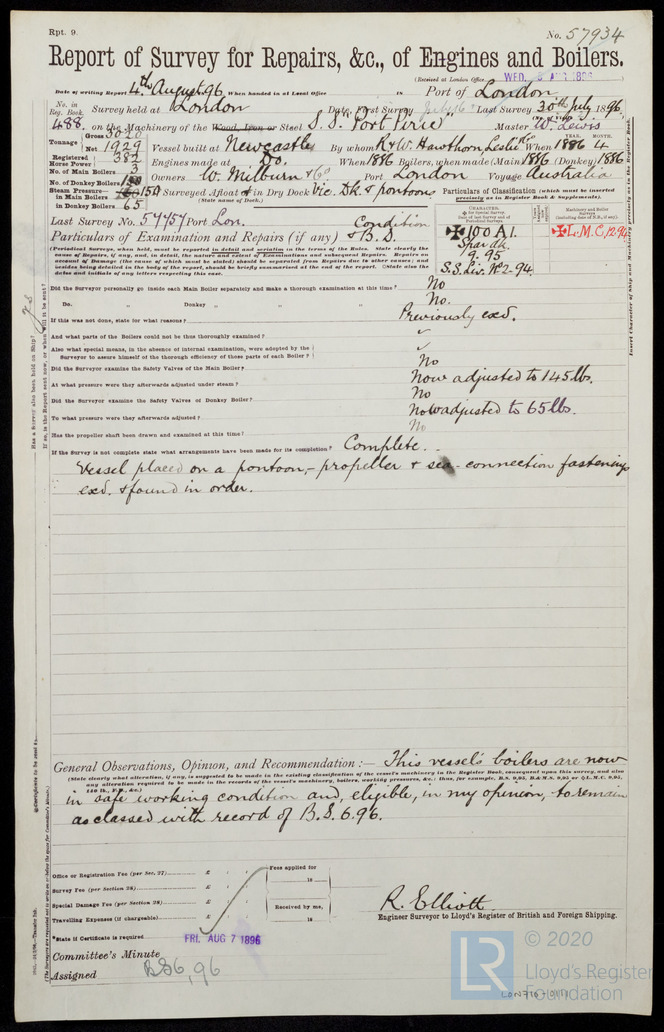 Rpt. 9.
No. 57934
Report of Survey for Repairs, &c., of Engines and Boilers.
(Received at London Office WED. 5 AUG 1896)
Date of writing Report 4th August 96 When handed in at Local Office 18 Port of London
No. in Reg. Book. Survey held at London Date, First Survey July 16th Last Survey 30th July 1896
488 on the Machinery of the Wood, Iron or Steel S.S. "Port Pirie" Master W. Lewis
Tonnage Gross 3020
Net 1929 Vessel built at Newcastle By whom R & W. Hawthorn Leslie When 1886 4
Registered Horse Power 382 Engines made at Do. When 1886 Boilers, when made (Main) 1886 (Donkey) 1886
No. of Main Boilers 3
No. of Donkey Boilers Owners W. Milburn & Co Port London Voyage Australia
Steam Pressure in Main Boilers 160 150 Surveyed Afloat & in Dry Dock Vic. Dk & pontoons
(State name of Dock.)
in Donkey Boilers 65
Last Survey No. 57457 Port Lon.
Particulars of Classification (which must be inserted precisely as in Register Book & Supplements).
✠100 A1.
Spar dk.
9.95
S.S. Liv. No2-94.
✠L.M.C. 12.94
Particulars of Examination and Repairs (if any) Condition & B.S.
(Periodical Surveys, when held, must be reported in detail and seriatim in the terms of the Rules. State clearly the cause of Repairs, if any, and, in detail, the nature and extent of Examinations and subsequent Repairs. Repairs on account of Damage (the cause of which must be stated) should be separated from Repairs due to other causes; and besides being detailed in the body of the report, should be briefly summarised at the end of the report. State also the dates and initials of any letters respecting this case.
Did the Surveyor personally go inside each Main Boiler separately and make a thorough examination at this time? No
Do. " Donkey " " " No.
If this was not done, state for what reasons? Previously exd.
And what parts of the Boilers could not be thus thoroughly examined? ✓
Also what special means, in the absence of internal examination, were adopted by the Surveyor to assure himself of the thorough efficiency of those parts of each Boiler? ✓
Did the Surveyor examine the Safety Valves of the Main Boiler? No
At what pressure were they afterwards adjusted under steam? Now adjusted to 145 lbs.
Did the Surveyor examine the Safety Valves of Donkey Boiler? No
To what pressure were they afterwards adjusted? Now adjusted to 65 lbs.
Has the propeller shaft been drawn and examined at this time? No
If the Survey is not complete state what arrangements have been made for its completion? Complete.
Vessel placed on a pontoon, - propeller & sea-connection fastenings
exd. & found in order.
General Observations, Opinion, and Recommendation :— This vessel's boilers are now
in safe working condition and, eligible, in my opinion, to remain
as classed with record of B.S. 6.96.
Office or Registration Fee (per Sec. 27) £
Survey Fee (per Section 28) £
Special Damage Fee (per Section 28) £
Travelling Expenses (if chargeable) £
Fees applied for
18
Received by me,
18
R. Elliott
Engineer Surveyor to Lloyd's Register of British and Foreign Shipping.
*State if Certificate is required
FRI. AUG 7 1896
Committee's Minute
Assigned BS6,96
LR
© 2020
Lloyd's Register
Foundation